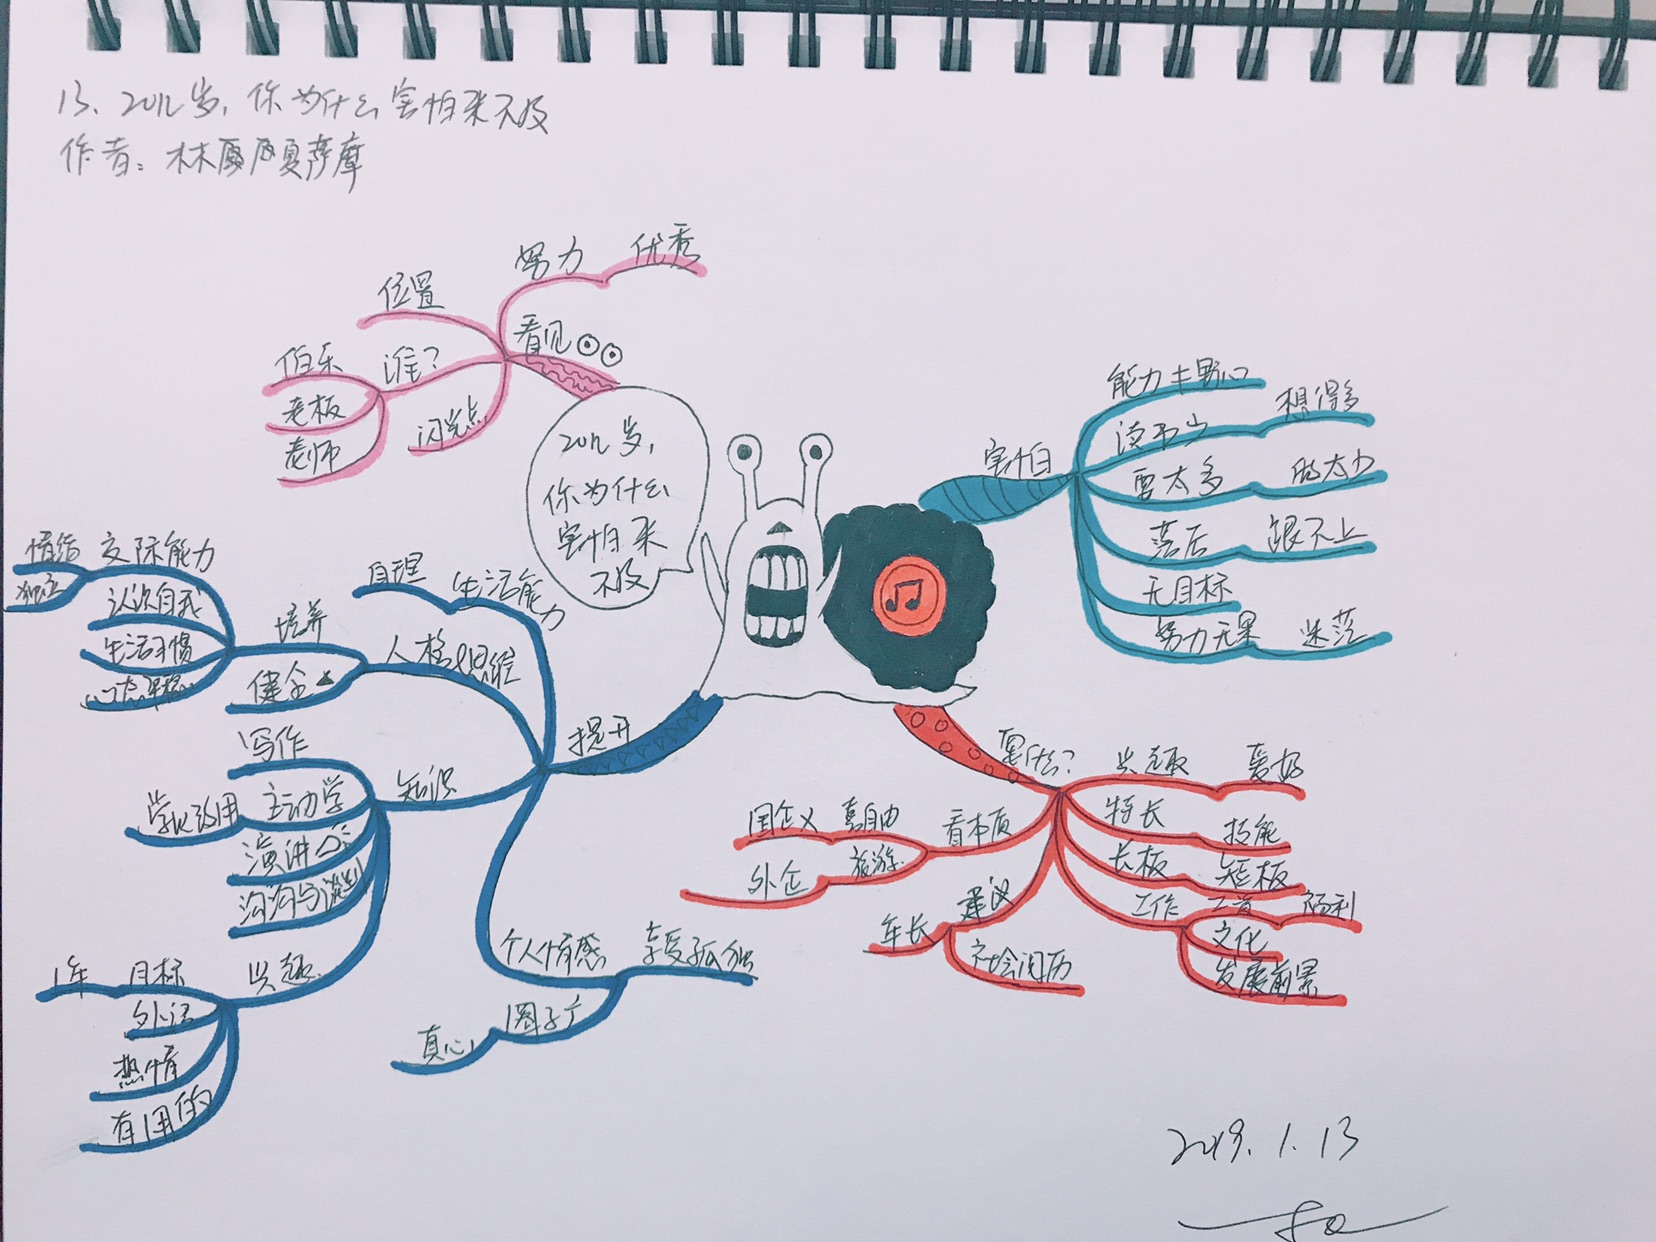 13、20几岁，你为什么害怕来不及
作者：林夏萨摩
20几岁，
你为什么
害怕来
不及
害怕
能力≠野心
读书少 想得多
要太多 做太少
落后 跟不上
无目标
努力无果 迷茫
要什么？
兴趣 爱好
特长 技能
长板 短板
工作 工资 福利
文化
发展前景
建议
年长
社会阅历
看本质
喜自由 国企义
旅游 外企
提升
生活能力 自理
人格思维
培养
交际能力 情绪
独立
认识自我
生活习惯
心态平稳
健全
知识
写作
主动学 学以致用
演讲
沟沟与谈判
兴趣
目标 1年
外语
热情
有用的
个人情感 享受孤独
圈子广 真心
看见
努力 优秀
位置
谁？
伯乐
老板
老师
闪光点
2019.1.13